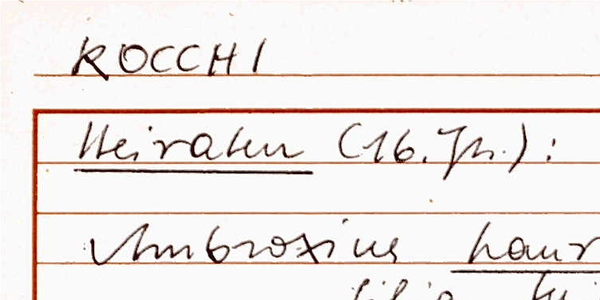 ROCCHI
Heiraten (16. Jh.):
Ambrosius
filia